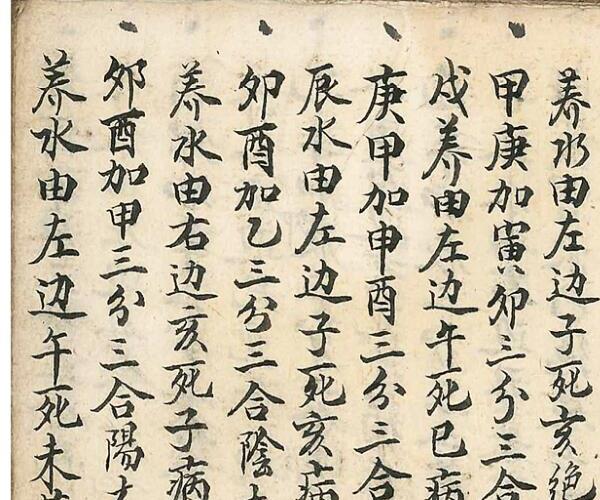 养水由左边子死亥絶
甲庚加寅卯三分三合
戌养由左边午死巳病
庚甲加申酉三分三合
辰水由左边子死亥病
卯酉加乙三分三合陰
养水由右边亥死子病
卯酉加甲三分三合陽
养水由左边午死未